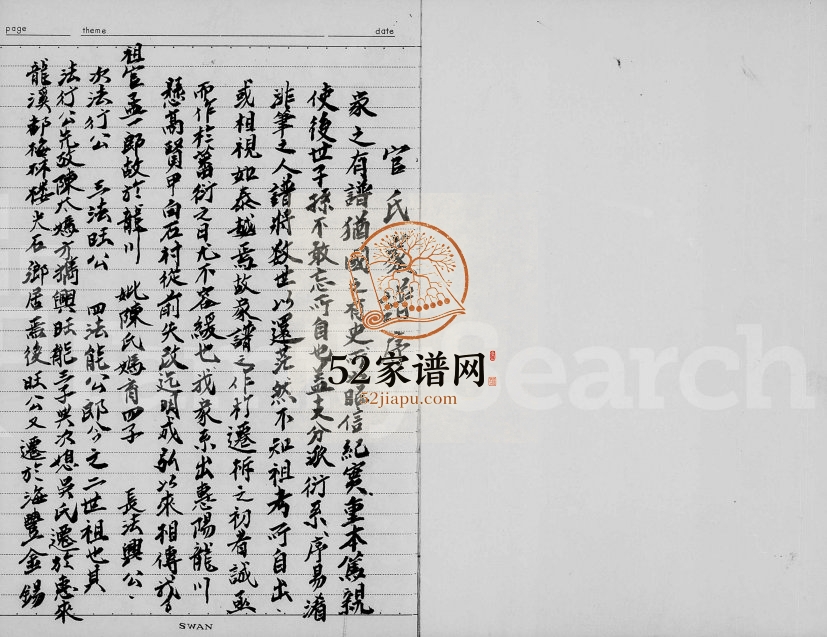 page theme date
官氏家譜序
家之有譜猶國之有史所以昭信紀實重本篤親
使後世子孫不敢忘所自也蓋夫分派衍系序易淆
非筆之人譜將數世以還茫然不知祖考所自出
或相視如秦越焉故家譜之作於遷析之初者誠亟
而作於蕃衍之日尤不容緩也我家系出惠陽龍川
懸高賢甲向石村從前失考迄明成弘以來相傳
祖官孟一郎故於龍川 妣陳氏媽育四子 長法興公
次法行公 三法旺公 四法能公即今之二世祖也其
法行公先故陳大媽方携興旺能三子與次媳吳氏遷於惠來
龍溪都梅林樓大石鄉居焉後旺公又遷於海豐金錫
SWAN
52家谱网
52jiapu.com
Search